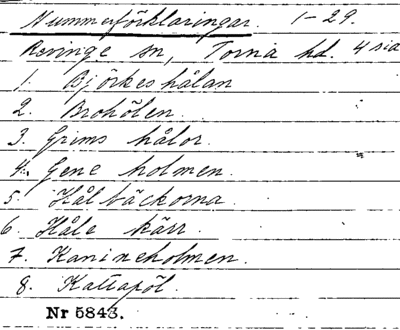 Nummerförklaringar. 1-29.
Revinge sn, Torna hd. 4 sid
1. Björkeshålan
2. Brohölen.
3. Grims hålor.
4. Gene holmen.
5. Hålbäckorna.
6. Håle kärr.
7. Kanineholmen.
8. Kattapöl.
Nr 5843.